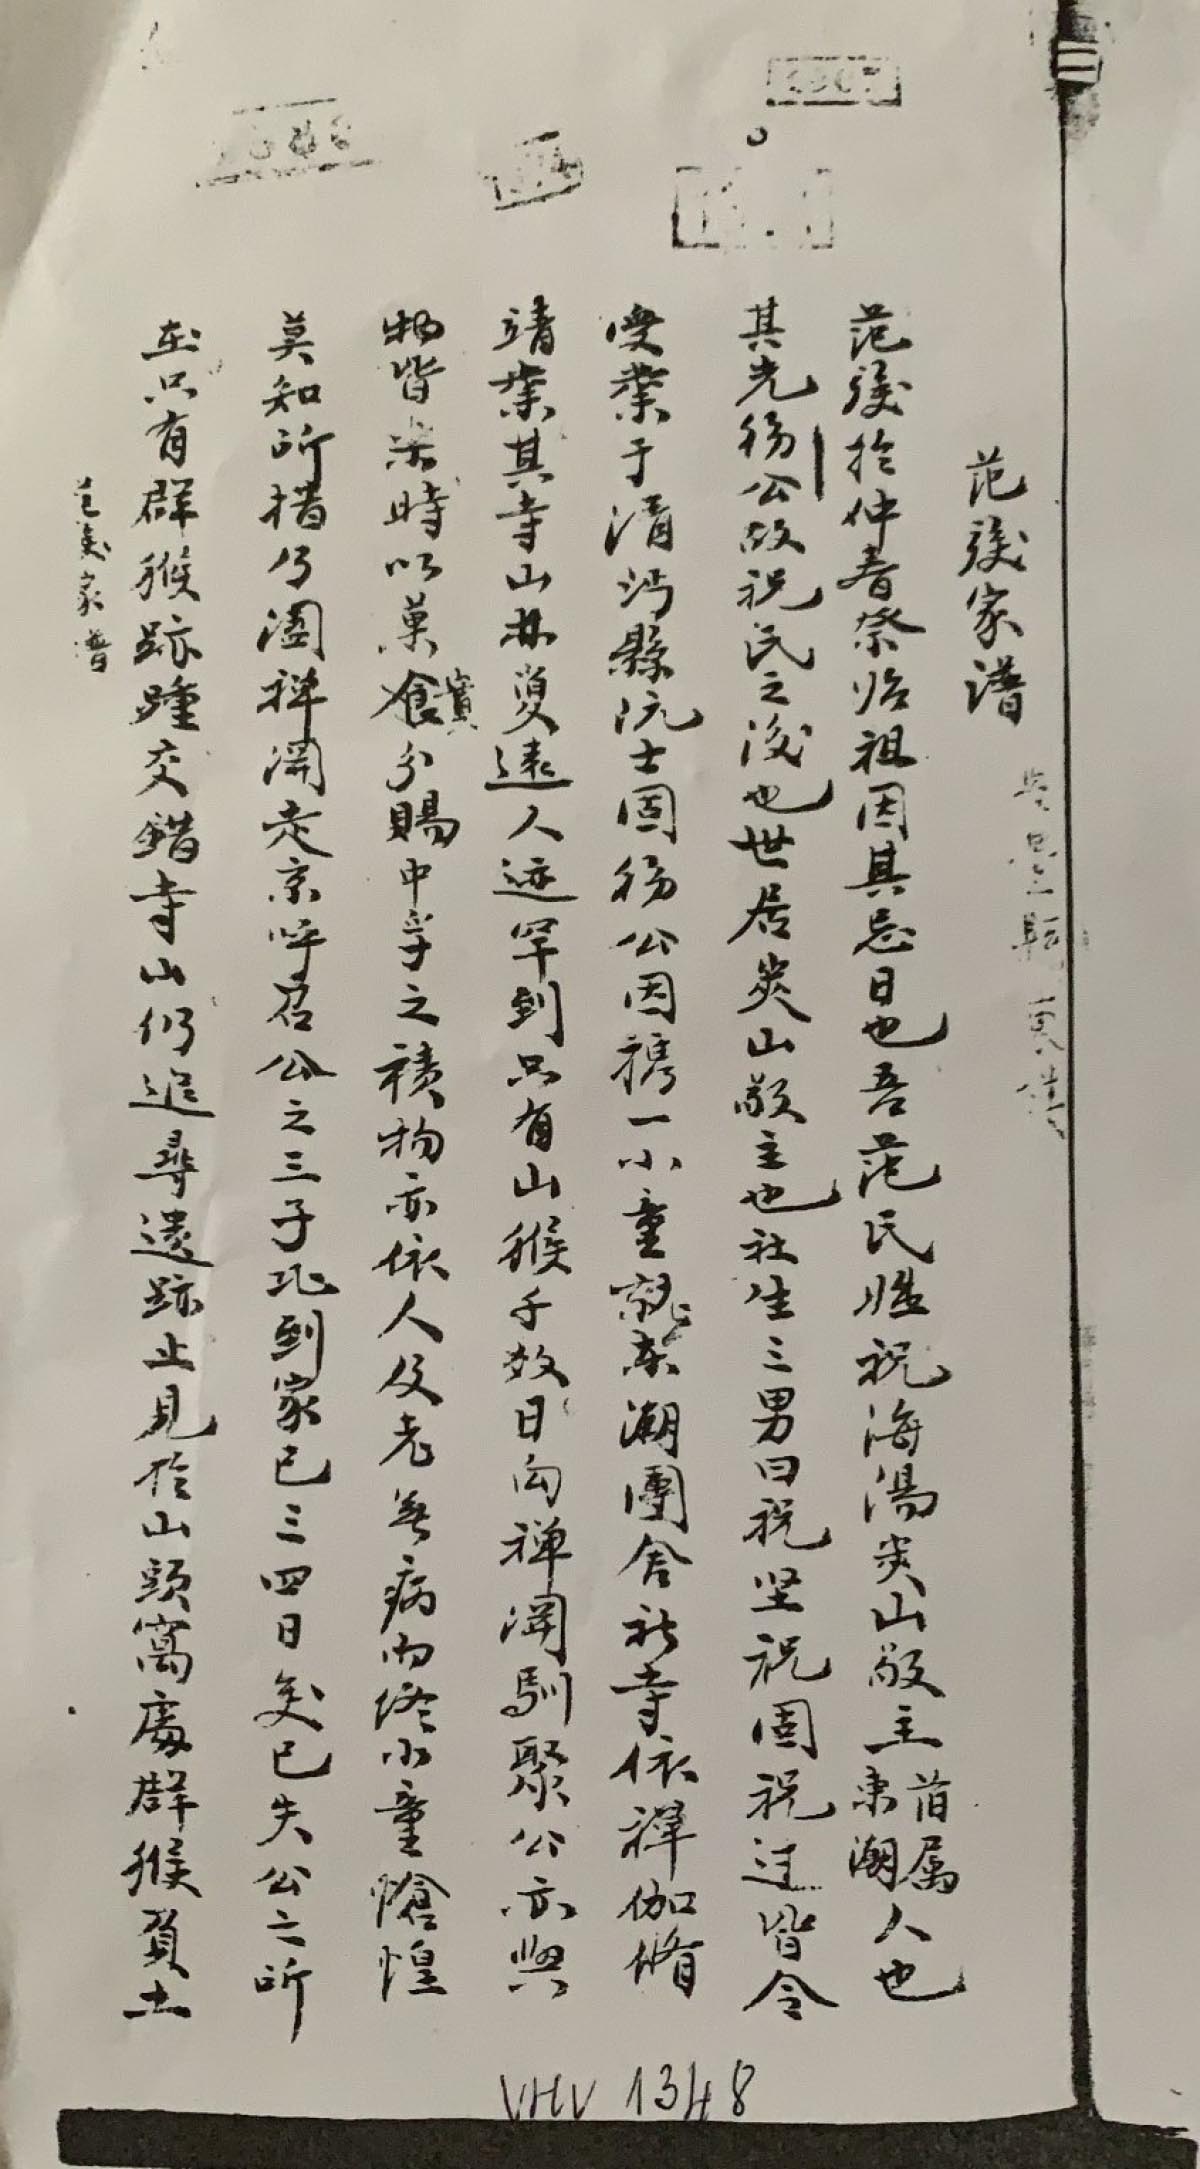 范族家譜
范族於仲春祭始祖因其忌日也吾范氏姓祝海陽炎山敬主首属東潮人也
其先務公故祝氏之後也世居炎山敬主也社生三男曰祝坚祝固祝过皆令
受業于清沔縣阮士固務公因携一小童就東潮團舍社寺依禅伽脩
靖業其寺山林夐遠人迹罕到只有山猴千数日向禅関馴聚公亦與
物皆樂時以菓實食分賜中孚之積物亦依人及老無病而終小童愴惶
莫知所措乃闔禅関走京呼召公之三子比到家已三四日矣已失公之所
在只有群猴跡踵交錯寺山仍追尋遗跡止見於山頭窩處群猴負土
范族家譜
VHV 1348